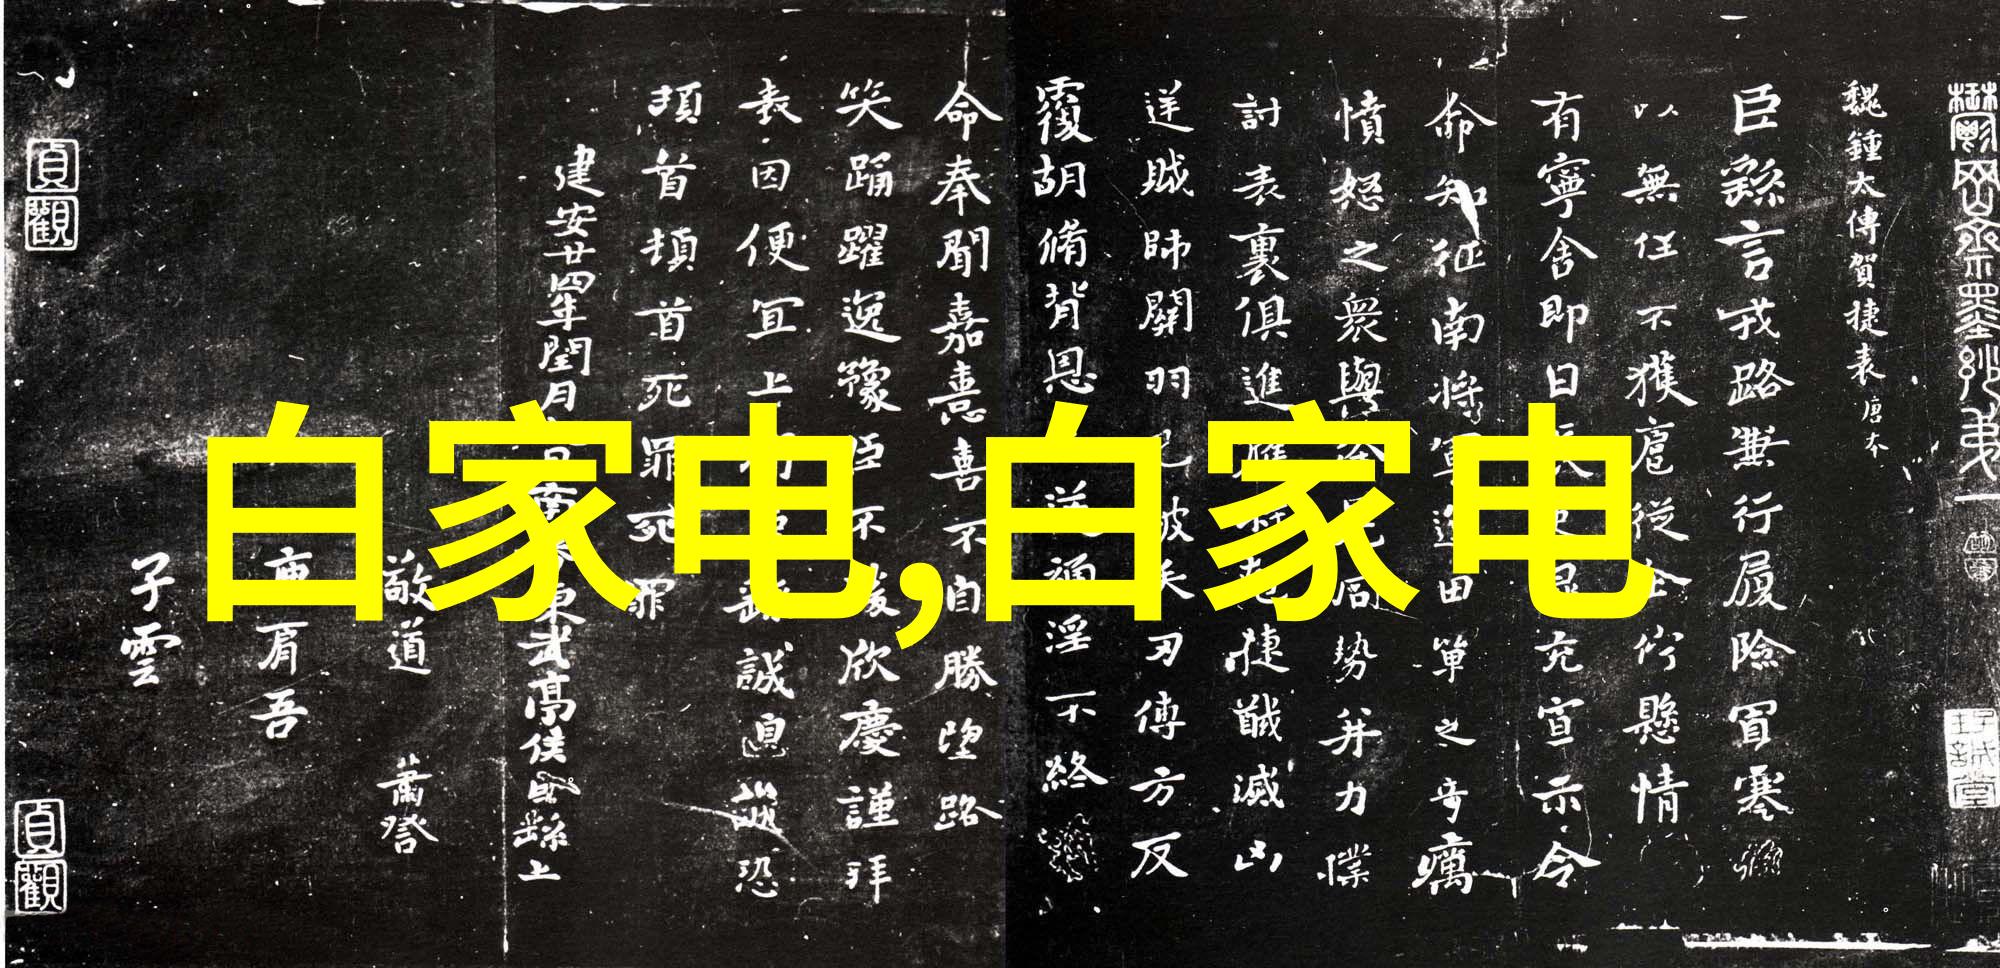 魏鍾太傅賀捷表唐本
臣繇言戎路兼行履險冒寒
以無任不獲扈從企佇懸情
有寧舍即日
充宣示令
命知征南将軍
田單之奇厲
憤怒之衆與
同勢并力撲
討表裏俱進
捷馘滅凶
逆賊帥關羽已被矢刃傅方反
覆胡脩背恩
淫不終
命奉聞嘉憙喜不自勝望路
笑踊躍逸豫臣不
欣慶謹拜
表因便宜上
誠惶誠恐
頓首頓首死罪死罪
建安廿四年閏月
東武亭侯臣繇上
敬道
庾肩吾
子雲
貞觀
貞觀
白家电,白家电